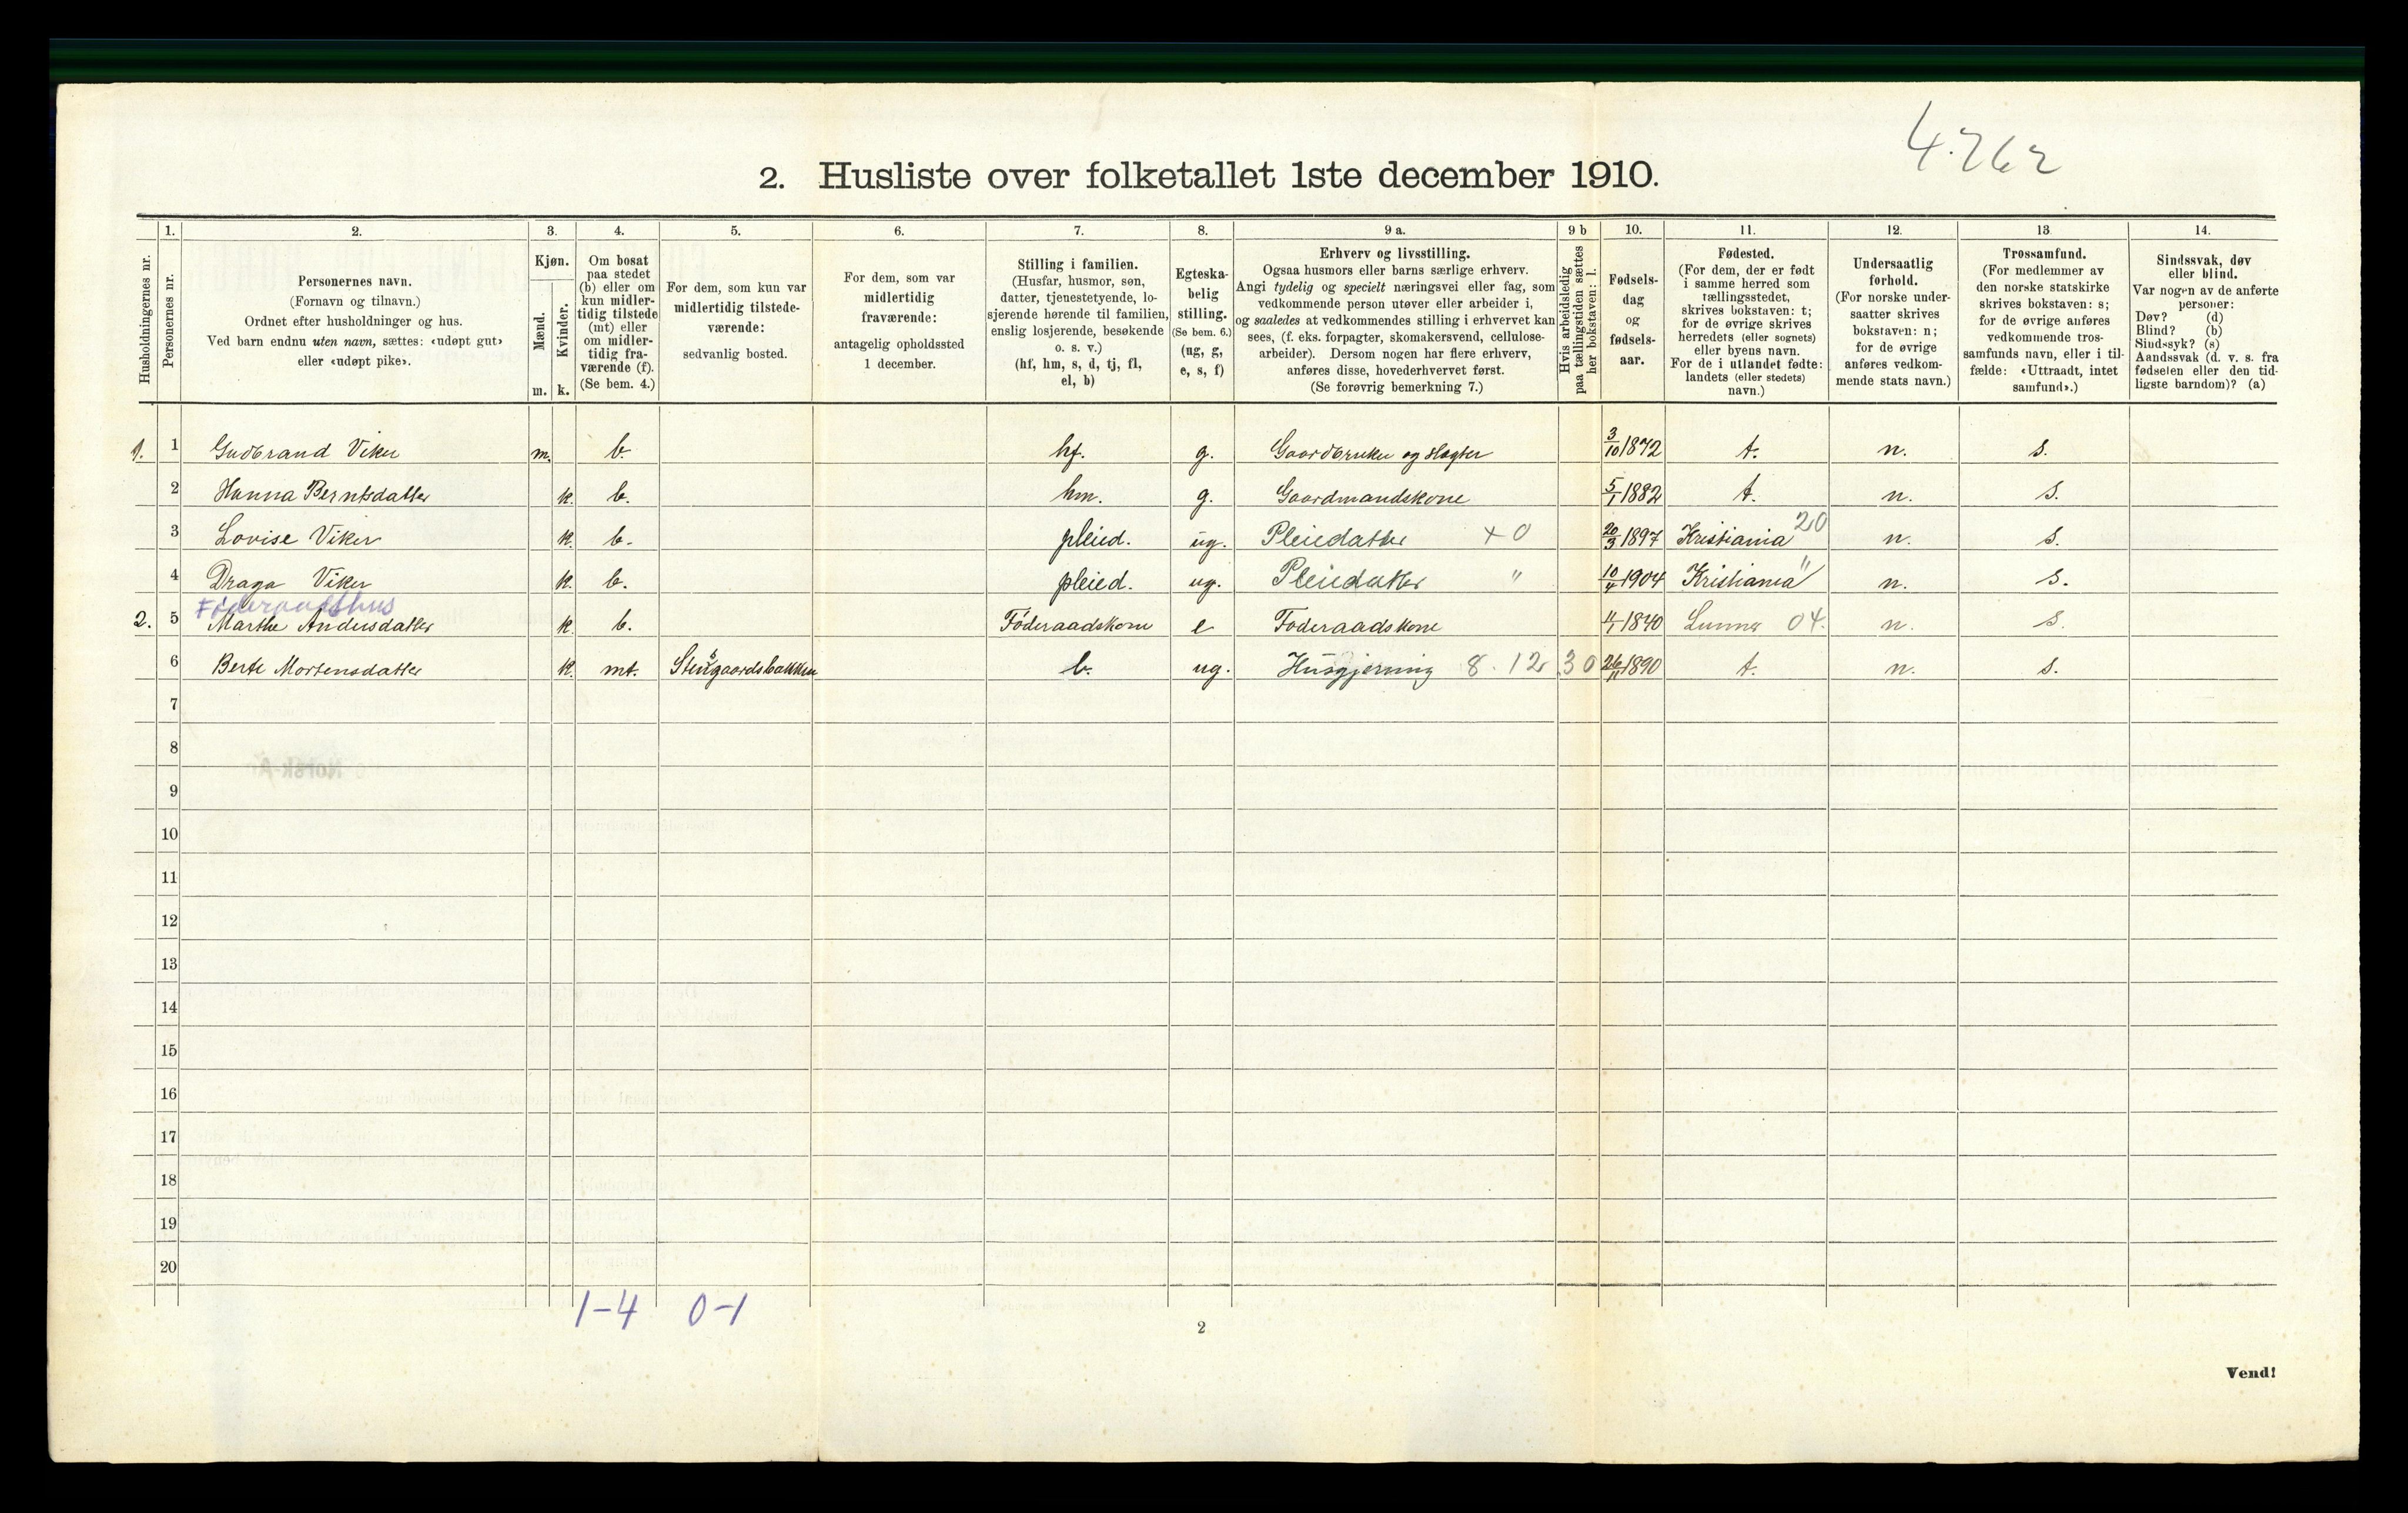 4.262
2. Husliste over folketallet 1ste december 1910.
Husholdningernes nr.
1. Personernes nr.
2. Personernes navn. (Fornavn og tilnavn.) Ordnet efter husholdninger og hus. Ved barn endnu uten navn, sættes: «udøpt gut» eller «udøpt pike».
3. Kjøn. Mænd. m. Kvinder. k.
4. Om bosat paa stedet (b) eller om kun midlertidig tilstede (mt) eller om midlertidig fraværende (f). (Se bem. 4.)
5. For dem, som kun var midlertidig tilstedeværende: sedvanlig bosted.
6. For dem, som var midlertidig fraværende: antagelig opholdssted 1 december.
7. Stilling i familien. (Husfar, husmor, søn, datter, tjenestetyende, losjerende hørende til familien, enslig losjerende, besøkende o. s. v.) (hf, hm, s, d, tj, fl, el, b)
8. Egteskabelig stilling. (Se bem. 6.) (ug, g, e, s, f)
9 a. Erhverv og livsstilling. Ogsaa husmors eller barns særlige erhverv. Angi tydelig og specielt næringsvei eller fag, som vedkommende person utøver eller arbeider i, og saaledes at vedkommendes stilling i erhvervet kan sees, (f. eks. forpagter, skomakersvend, cellulosearbeider). Dersom nogen har flere erhverv, anføres disse, hovederhvervet først. (Se forøvrig bemerkning 7.)
9 b Hvis arbeidsledig paa tællingstiden sættes her bokstaven: l.
10. Fødselsdag og fødselsaar.
11. Fødested. (For dem, der er født i samme herred som tællingsstedet, skrives bokstaven: t; for de øvrige skrives herredets (eller sognets) eller byens navn. For de i utlandet fødte: landets (eller stedets) navn.)
12. Undersaatlig forhold. (For norske undersaatter skrives bokstaven: n; for de øvrige anføres vedkommende stats navn.)
13. Trossamfund. (For medlemmer av den norske statskirke skrives bokstaven: s; for de øvrige anføres vedkommende trossamfunds navn, eller i tilfælde: «Uttraadt, intet samfund».)
14. Sindssvak, døv eller blind. Var nogen av de anførte personer: Døv? (d) Blind? (b) Sindssyk? (s) Aandssvak (d. v. s. fra fødselen eller den tidligste barndom)? (a)
1. 1 Gudbrand Viker m. b. hf. g. Gaardbruker og slagter 3/10 1872 t. n. s.
2 Hanna Berntsdatter k. b. hm. g. Gaardmandskone 5/1 1882 t. n. s.
3 Lovise Viker k. b. pleied. ug. Pleiedatter + 0 20/3 1897 Kristiania 20 n. s.
4 Draga Viker k. b. pleied. ug. Pleiedatter " 10/4 1904 Kristiania " n. s.
Føderaadshus
2. 5 Marthe Andersdatter k. b. Føderaadskone e Føderaadskone 1840 Lunner 04. n. s.
6 Berte Mortensdatter k. mt. Stensgaardsbakken b. ug. Husgjerning 8.12 30 26/11 1890 t. n. s.
7
8
9
10
11
12
13
14
15
16
17
18
19
20
1-4 0-1
2
Vend!